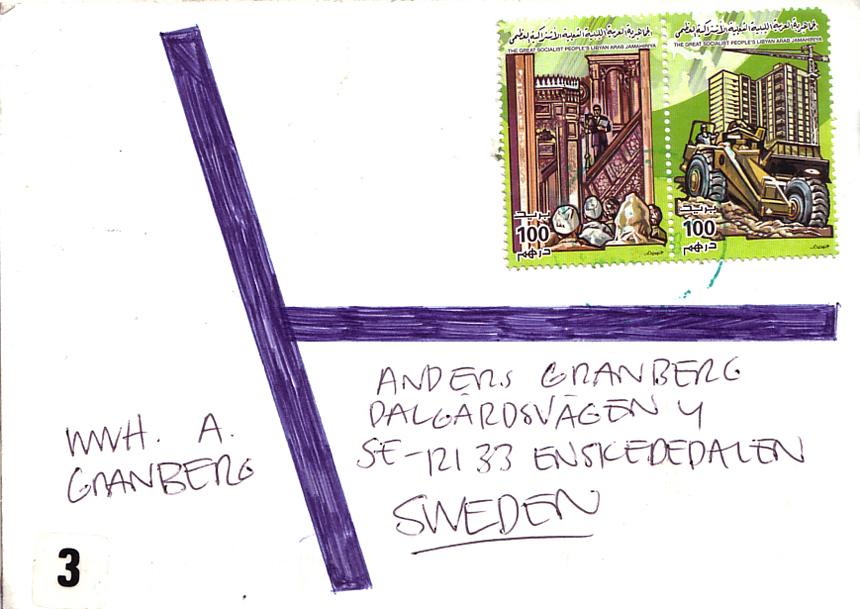 الجماهيرية العربية الليبية الشعبية الاشتراكية العظمى
THE GREAT SOCIALIST PEOPLE'S LIBYAN ARAB JAMAHIRIYA
بريد
100
درهم
الجماهيرية العربية الليبية الشعبية الاشتراكية العظمى
THE GREAT SOCIALIST PEOPLE'S LIBYAN ARAB JAMAHIRIYA
بريد
100
درهم
ANDERS GRANBERG
DALGÅRDSVÄGEN 4
SE-121 33 ENSKEDEDALEN
SWEDEN
WWH. A.
GRANBERG
3